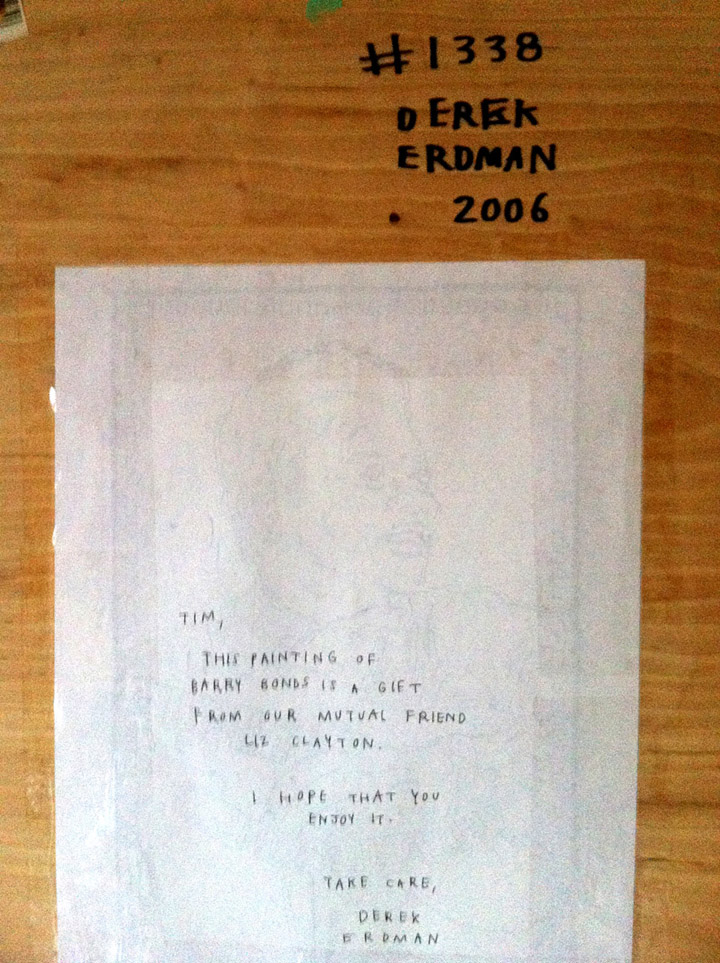 #1338
DEREK
ERDMAN
2006
TIM,
THIS PAINTING OF
BARRY BONDS IS A GIFT
FROM OUR MUTUAL FRIEND
LIZ CLAYTON.
I HOPE THAT YOU
ENJOY IT.
TAKE CARE,
DEREK
ERDMAN